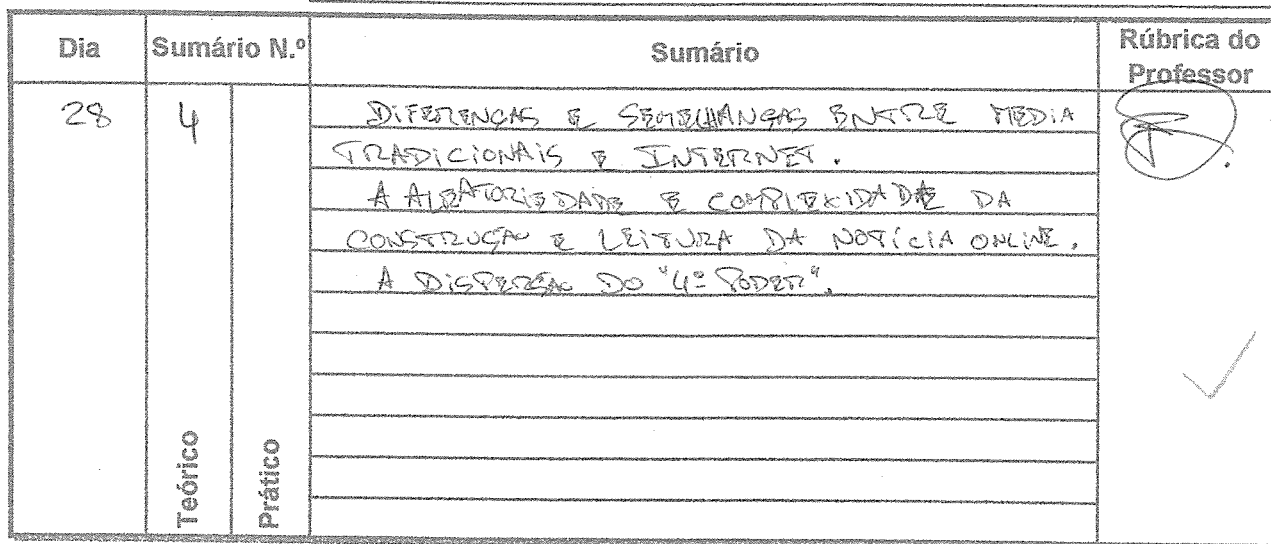 Dia Sumário N.º Sumário Rúbrica do
Professor
28 4 DIFERENÇAS E SEMELHANÇAS ENTRE MEDIA
TRADICIONAIS E INTERNET.
A ALEATORIEDADE E COMPLEXIDADE DA
CONSTRUÇÃO E LEITURA DA NOTÍCIA ONLINE.
A DISPERSÃO DO "4º PODER".
Teórico
Prático